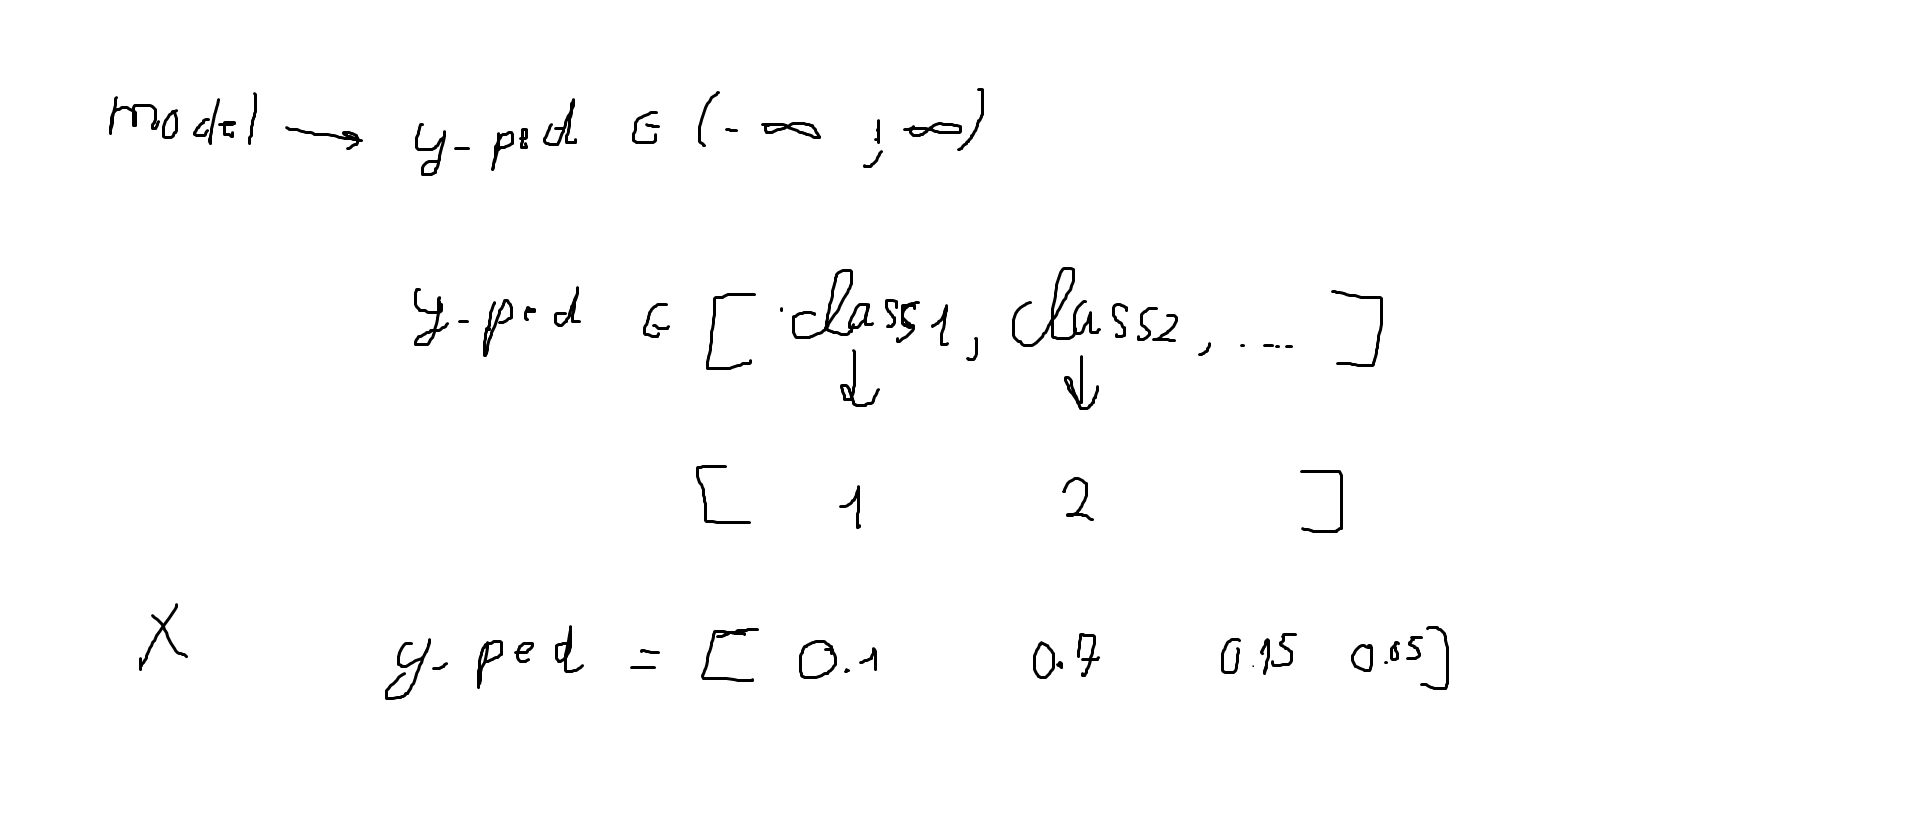 model → y-pred ∈ (-∞ ; ∞)
y-pred ∈ [ class1, class2, .... ]
↓ ↓
[ 1 2 ]
X y-ped = [ 0.1 0.7 0.15 0.05]